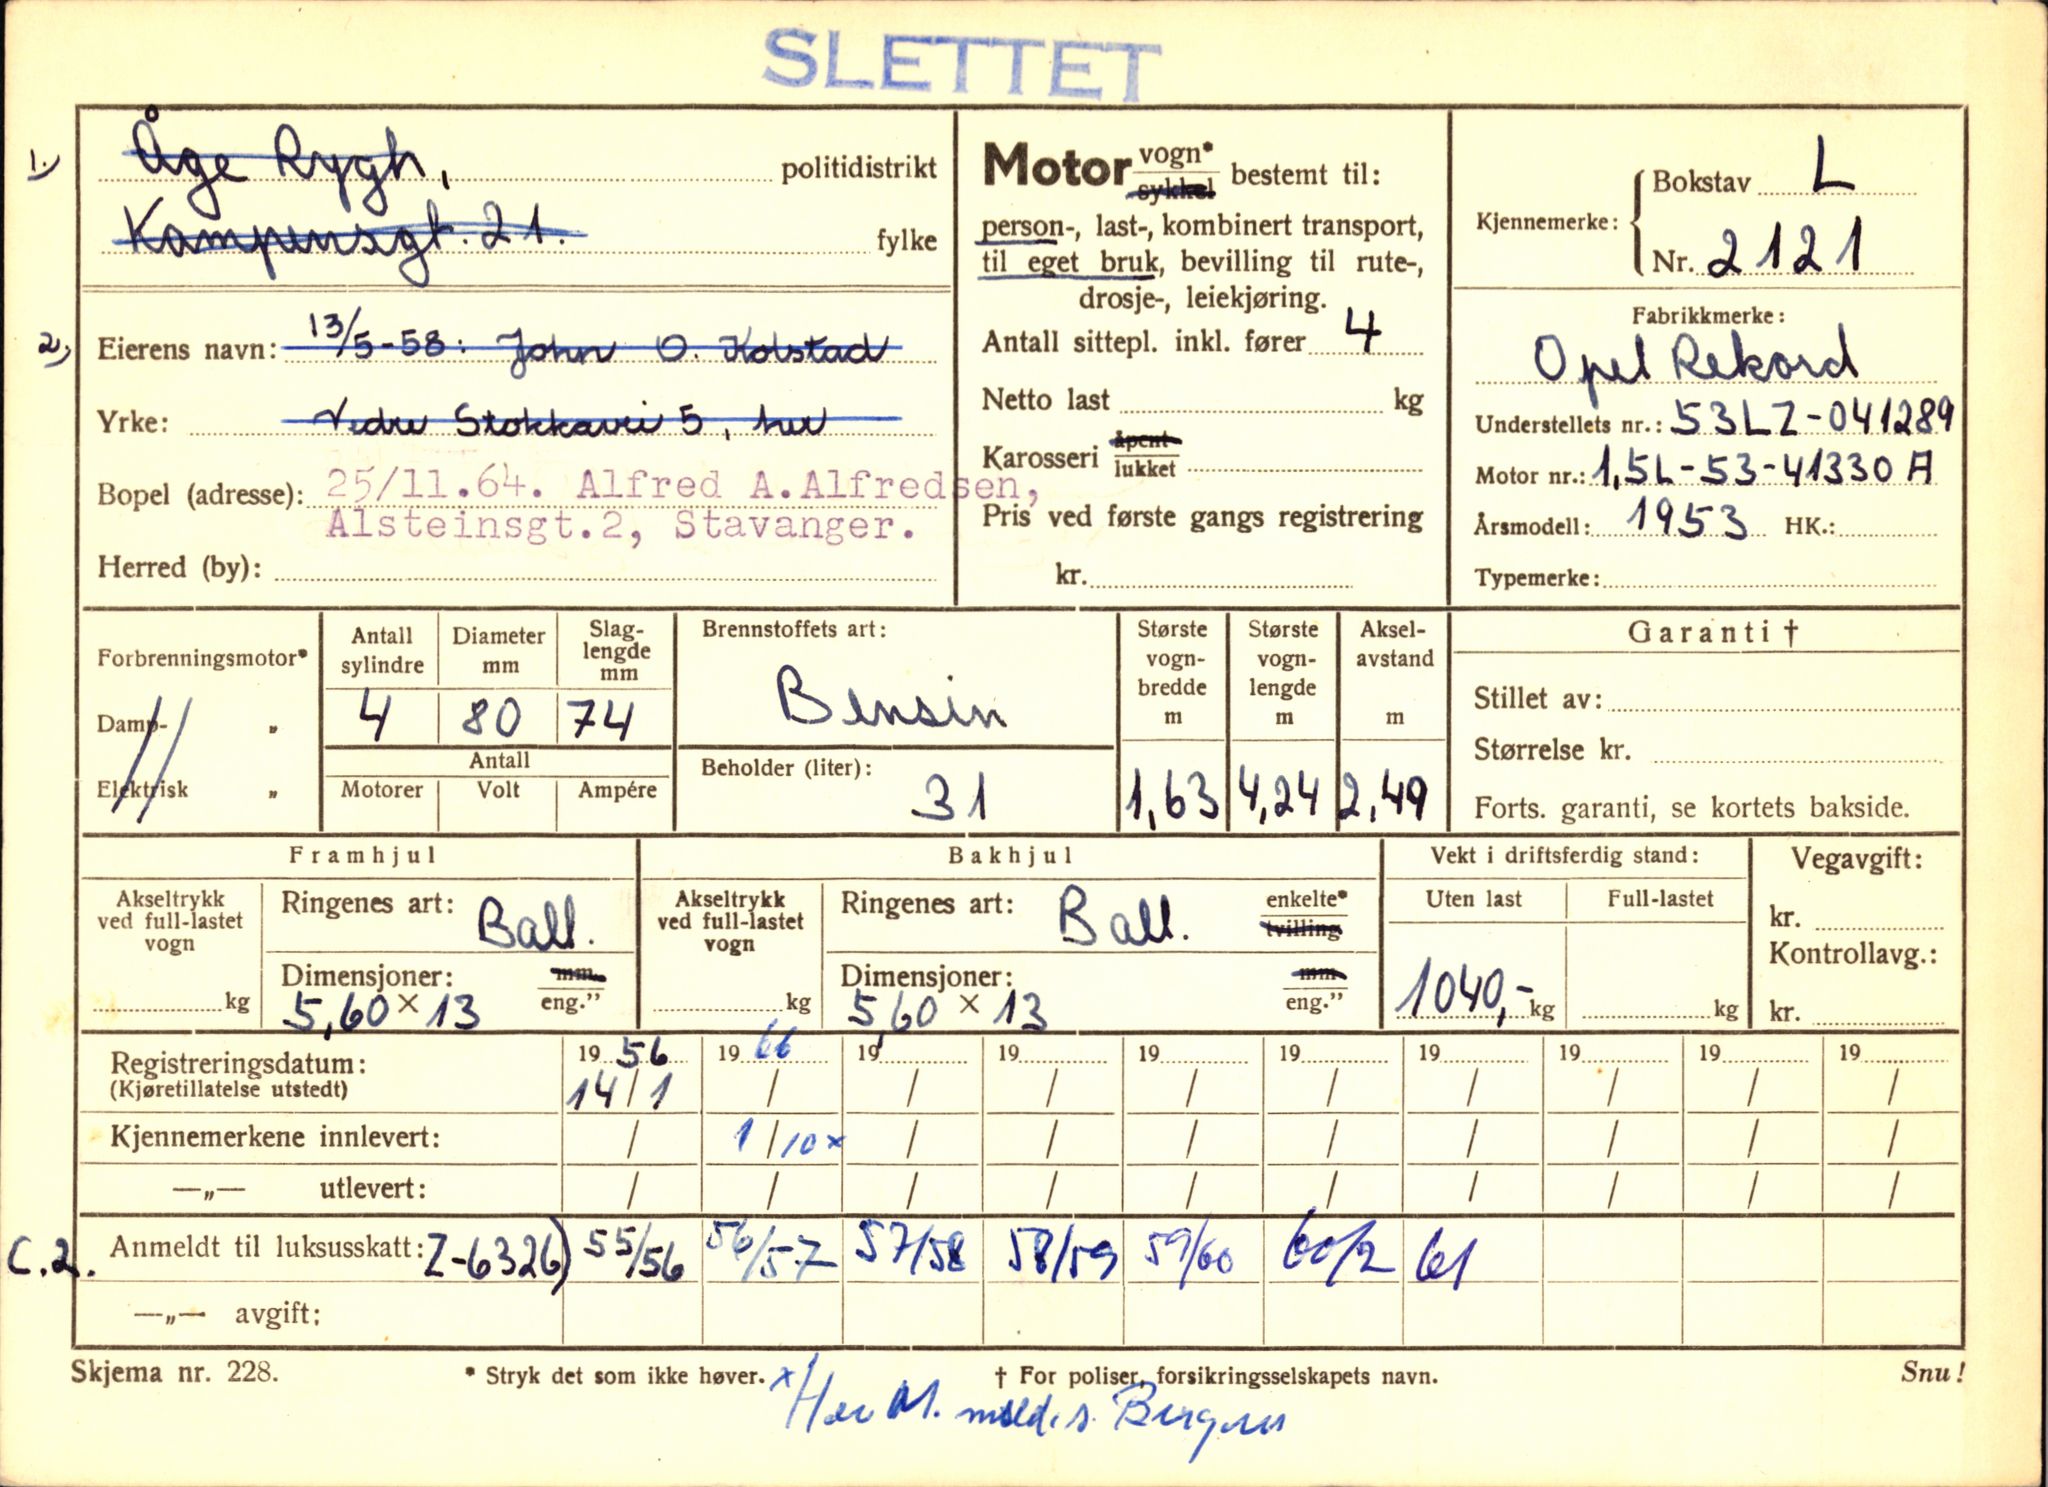 SLETTET
1.) Åge Rygh, politidistrikt
Kampensgt. 21. fylke
2) Eierens navn: 13/5-58: John O. Kolstad
Yrke: Stokkavei 5, her
Bopel (adresse): 25/11.64. Alfred A. Alfredsen,
Alsteinsgt.2, Stavanger.
Herred (by):
Motor vogn* sykkel bestemt til:
person-, last-, kombinert transport,
til eget bruk, bevilling til rute-,
drosje-, leiekjøring.
Antall sittepl. inkl. fører 4
Netto last kg
Karosseri åpent lukket
Pris ved første gangs registrering
kr.
Kjennemerke: Bokstav L
Nr. 2121
Fabrikkmerke:
Opel Rekord
Understellets nr.: 53LZ-041289
Motor nr.: 1,5L-53-41330 A
Årsmodell: 1953 HK.:
Typemerke:
Forbrenningsmotor*
Damp- „
Elektrisk „
Antall sylindre Diameter mm Slag-lengde mm
4 80 74
Antall
Motorer Volt Ampére
Brennstoffets art:
Bensin
Beholder (liter):
31
Største vogn-bredde m Største vogn-lengde m Aksel-avstand m
1,63 4,24 2,49
Garanti †
Stillet av:
Størrelse kr.
Forts. garanti, se kortets bakside.
Framhjul
Akseltrykk ved full-lastet vogn
kg
Ringenes art: Ball.
Dimensjoner: mm
5,60 × 13 eng.”
Bakhjul
Akseltrykk ved full-lastet vogn
kg
Ringenes art: Ball. enkelte* tvilling
Dimensjoner: mm
5,60 × 13 eng.”
Vekt i driftsferdig stand:
Uten last Full-lastet
1040,- kg kg
Vegavgift:
kr.
Kontrollavg.:
kr.
Registreringsdatum: 19 56 19 66 19 19 19 19 19 19 19 19
(Kjøretillatelse utstedt) 14/1 / / / / / / / / /
Kjennemerkene innlevert: / 1/10 x / / / / / / / /
—„— utlevert: / / / / / / / / / /
C.2. Anmeldt til luksusskatt: Z-6326) 55/56 56/57 57/58 58/59 59/60 60/2 61
—„— avgift:
Skjema nr. 228. * Stryk det som ikke høver. † For poliser, forsikringsselskapets navn. Snu!
x/ M. Bergen